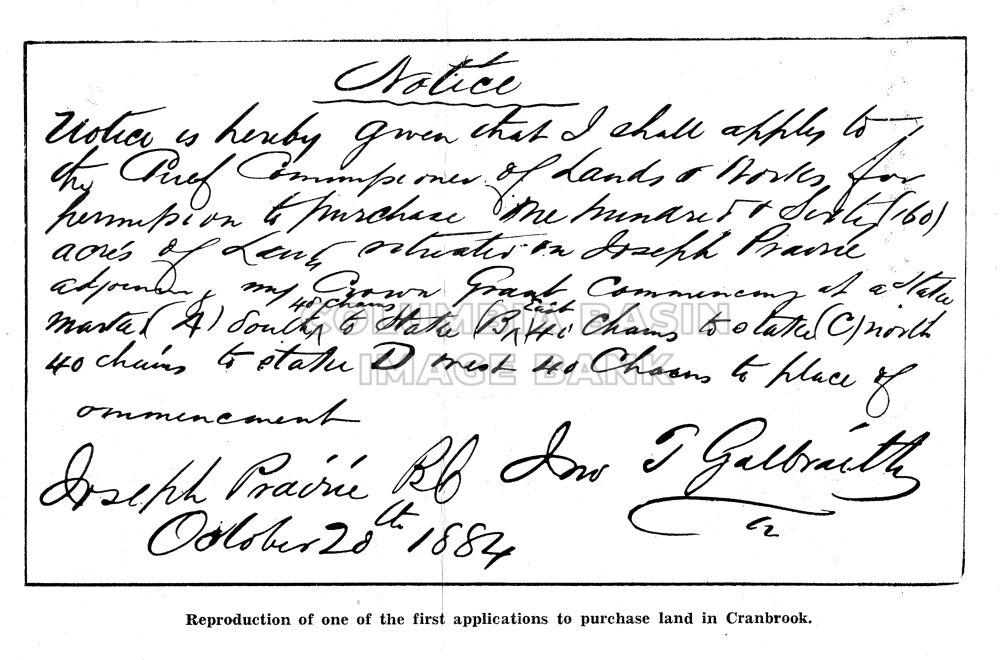 Notice
Notice is hereby given that I shall apply to
the Chief Commissioner of Lands & Works for
permission to purchase One hundred & Sixty (160)
acres of Land situated on Joseph Prairie
adjoining my Crown Grant commencing at a Stake
marked (A) South 40 chains to Stake (B) East 40 Chains to stake (C) north
40 chains to stake D west 40 Chains to place of
commencement
Jno T Galbraith
Joseph Prairie BC
October 20th 1884
COLUMBIA BASIN
IMAGE BANK
Reproduction of one of the first applications to purchase land in Cranbrook.